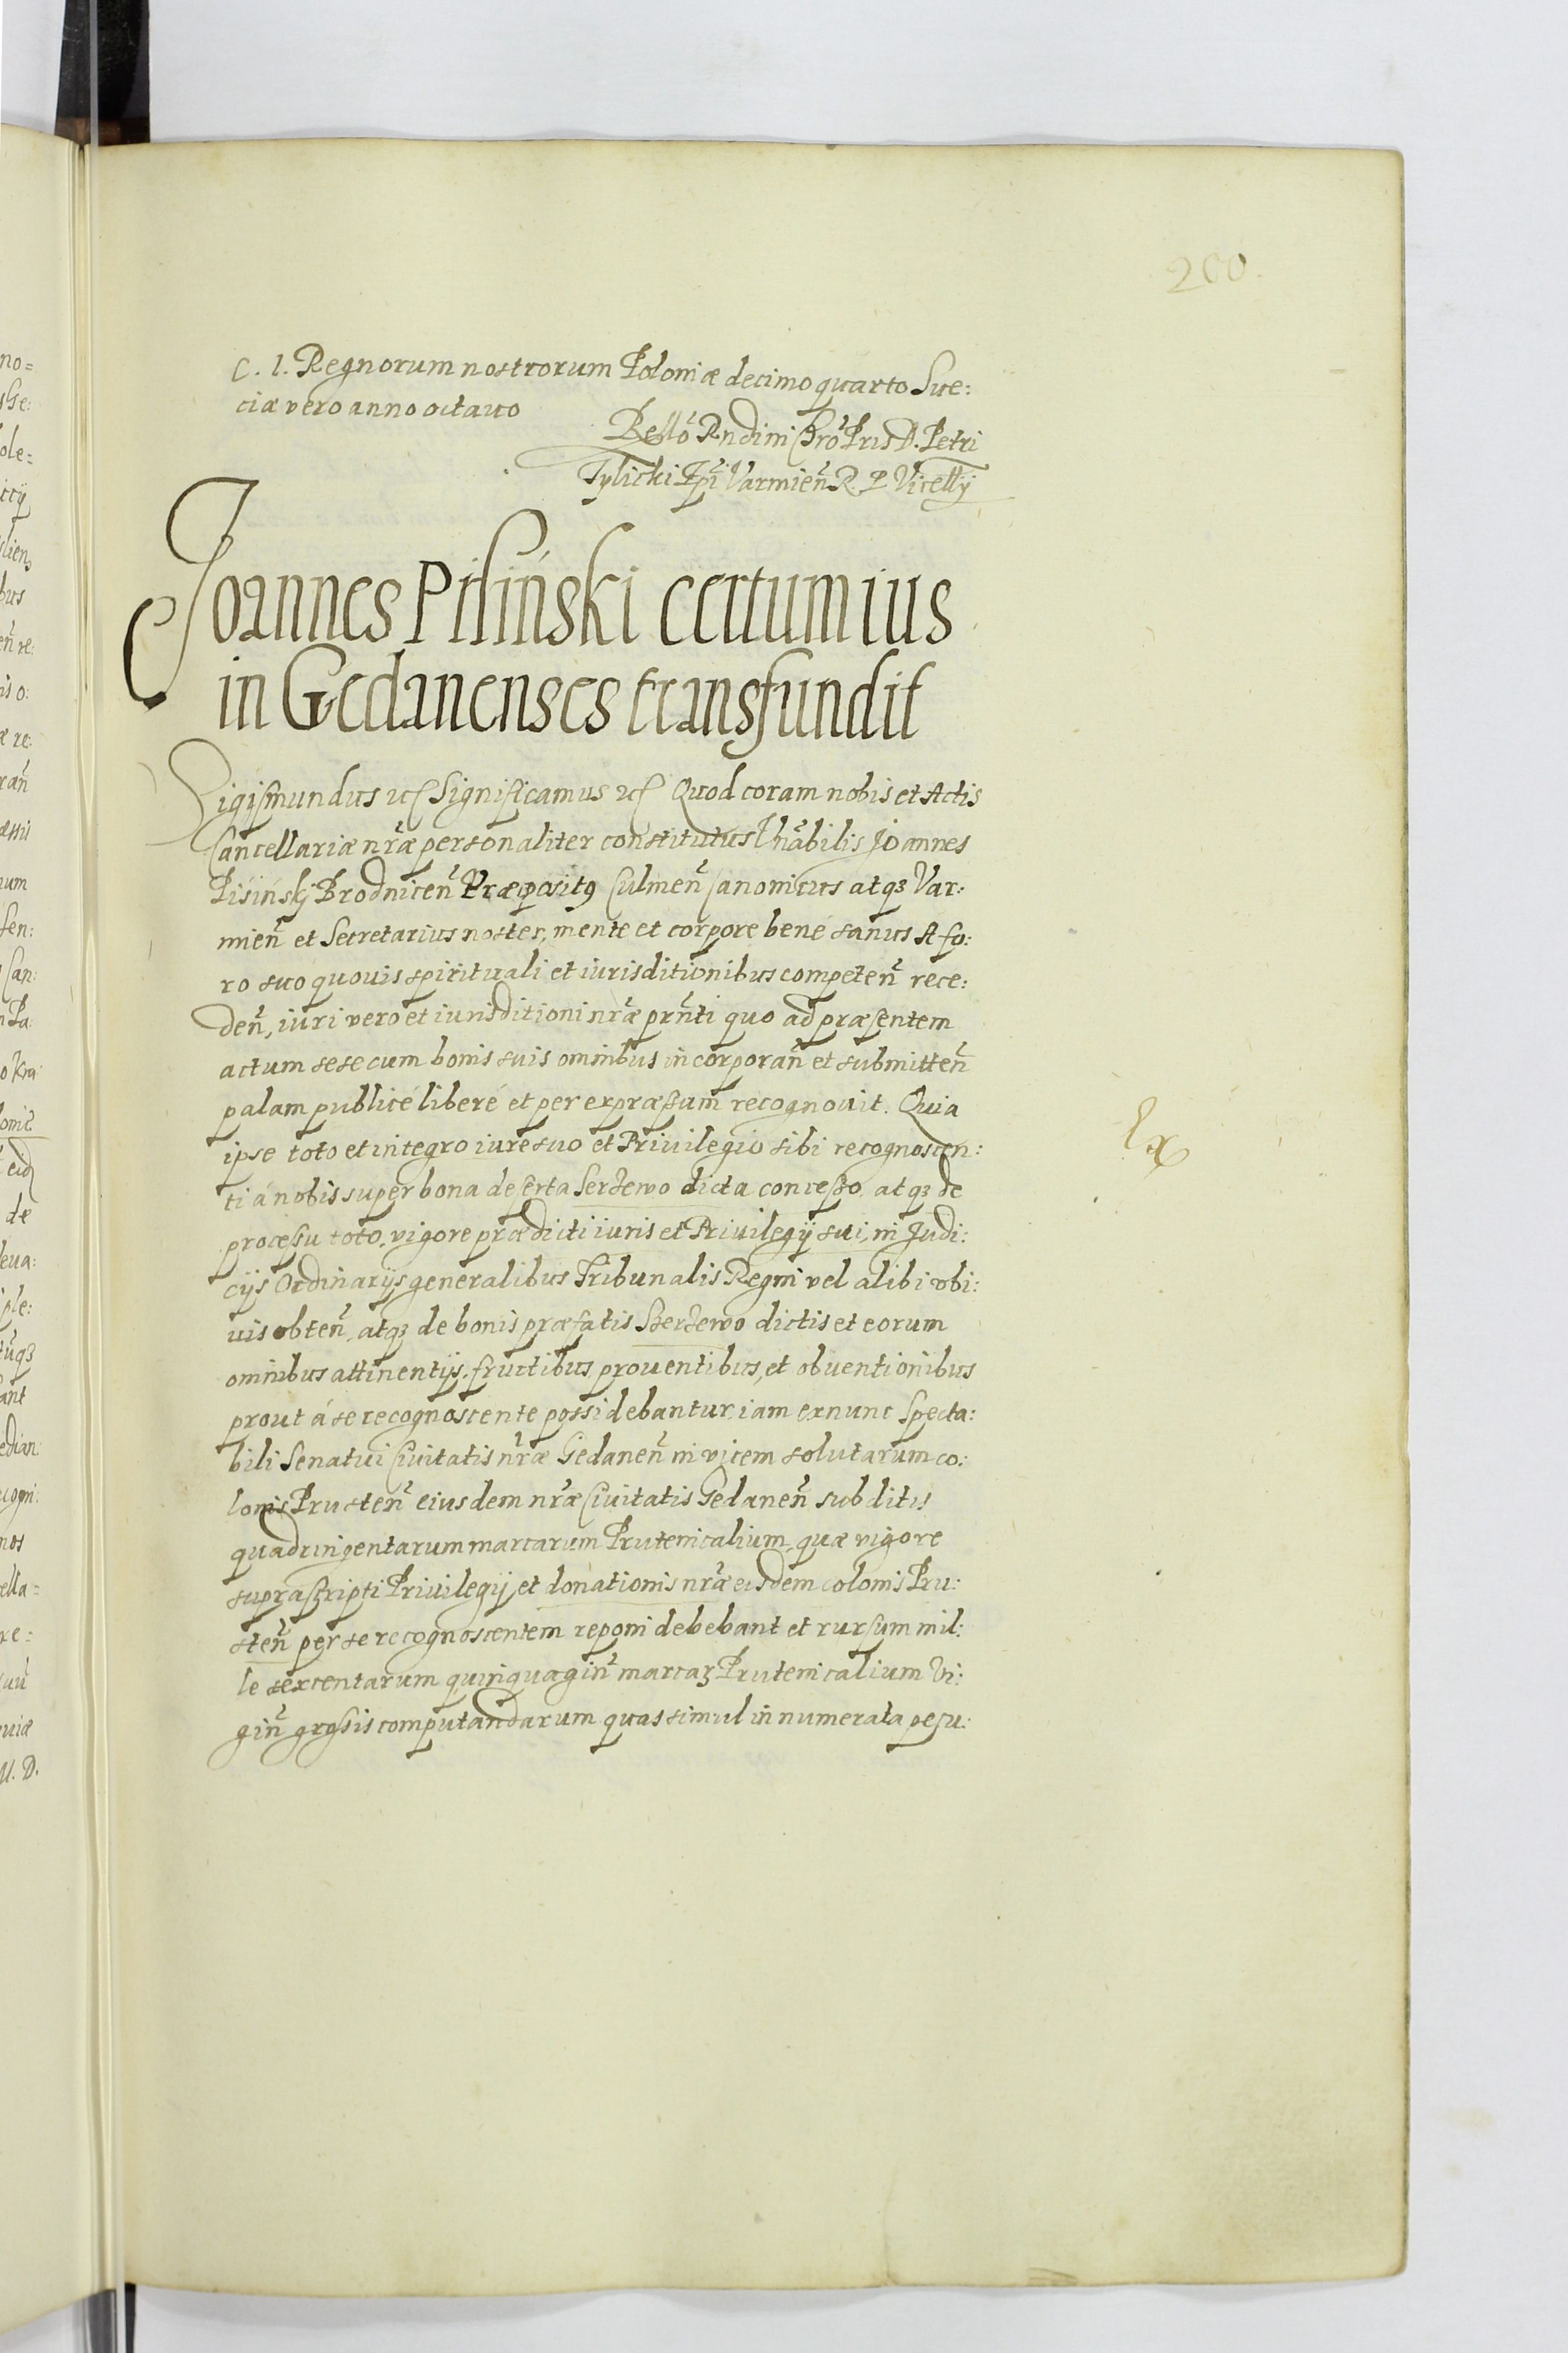 200.
C. I. Regnorum nostrorum Poloniæ decimo quarto Sue:
ciæ vero anno octauo
Rello Rndini Chro Pris D. Petri
Tylicki Epi Varmien̄ R. P. Vicecelly
Joannes Pisiński certum ius
in Gedanenses transfundit
Sigismundus etc Significamus etc Quod coram nobis et Actis
Cancellariæ nr̄æ personaliter constitutus Vn̄abilis Joannes
Pisińskj Brodnicen̄ Præposit9 Culmen̄ Canonicus atqз Var:
mien̄ et Secretarius noster, mente et corpore bené sanus A fo:
ro suo quouis spirituali et iurisditionibus competen̄ rece:
den̄, iuri vero et iurisditioni nr̄æ prn̄ti quo ad præsentem
actum sese cum bonis suis omnibus incorporan̄ et submitten̄
palam publicé liberé et per expræssum recognouit. Quia
ipse toto et integro iure suo et Priuilegio sibi recognoscen:
ti á nobis super bona deserta Serzewo dicta concesso, atqз de
processu toto, vigore prædicti iuris et Priuilegij sui, in Judi:
cijs Ordinarijs generalibus Tribunalis Regni vel alibi vbi:
uis obten̄, atqз de bonis præfatis Szerzewo dictis et eorum
omnibus attinentijs, fructibus, prouentibus, et obuentionibus
prout á se recognoscente possidebantur, iam ex nunc Specta:
bili Senatui Ciuitatis nr̄æ Gedanen̄ in vicem solutarum co:
lonis Prusten̄ eiusdem nr̄æ Ciuitatis Gedanen̄ subditis
quadringentarum marcarum Prutenicalium, quæ vigore
suprascripti Priuilegij et donationis nr̄æ eisdem colonis Pru:
sten̄ per se recognoscentem reponi debebant et rursum mil:
le sexcentarum quinquagin̄ marcaз Prutenicalium Vi:
gin̄ grossis computandarum quas simul in numerata pecu:
Ex